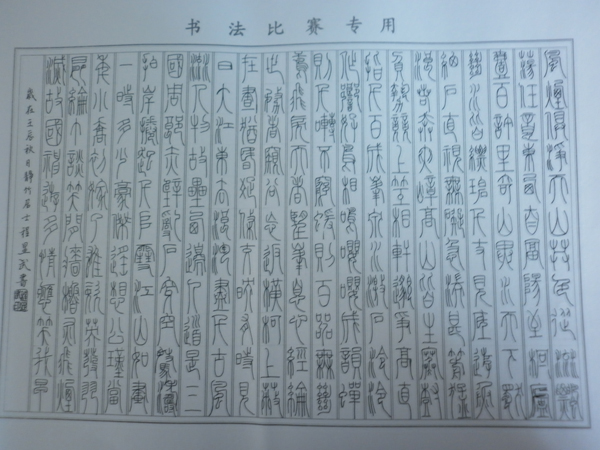 书法比赛专用
風煙俱淨天山共色從流飄
蕩任意東西自富陽至桐廬
壹百許里奇山異水天下獨
絕水皆縹碧千丈見底游魚
細石直視無礙急湍甚箭猛
浪若奔夾嶂高山皆生寒樹
負勢競上互相軒邈爭高直
指千百成峯泉水激石泠泠
作響好鳥相鳴嚶嚶成韻蟬
則千轉不窮猨則百叫無絕
鳶飛戾天者望峯息心經綸
世務者窺谷忘返橫柯上蔽
在晝猶昏疏條交映有時見
日大江東去浪淘盡千古風
流人物故壘西邊人道是三
國周郎赤壁亂石穿空驚濤
拍岸捲起千堆雪江山如畫
一時多少豪傑遙想公瑾當
年小喬初嫁了雄姿英發羽
扇綸巾談笑間檣櫓灰飛煙
滅故國神遊多情應笑我早
歲在壬辰秋月靜竹居士程武書